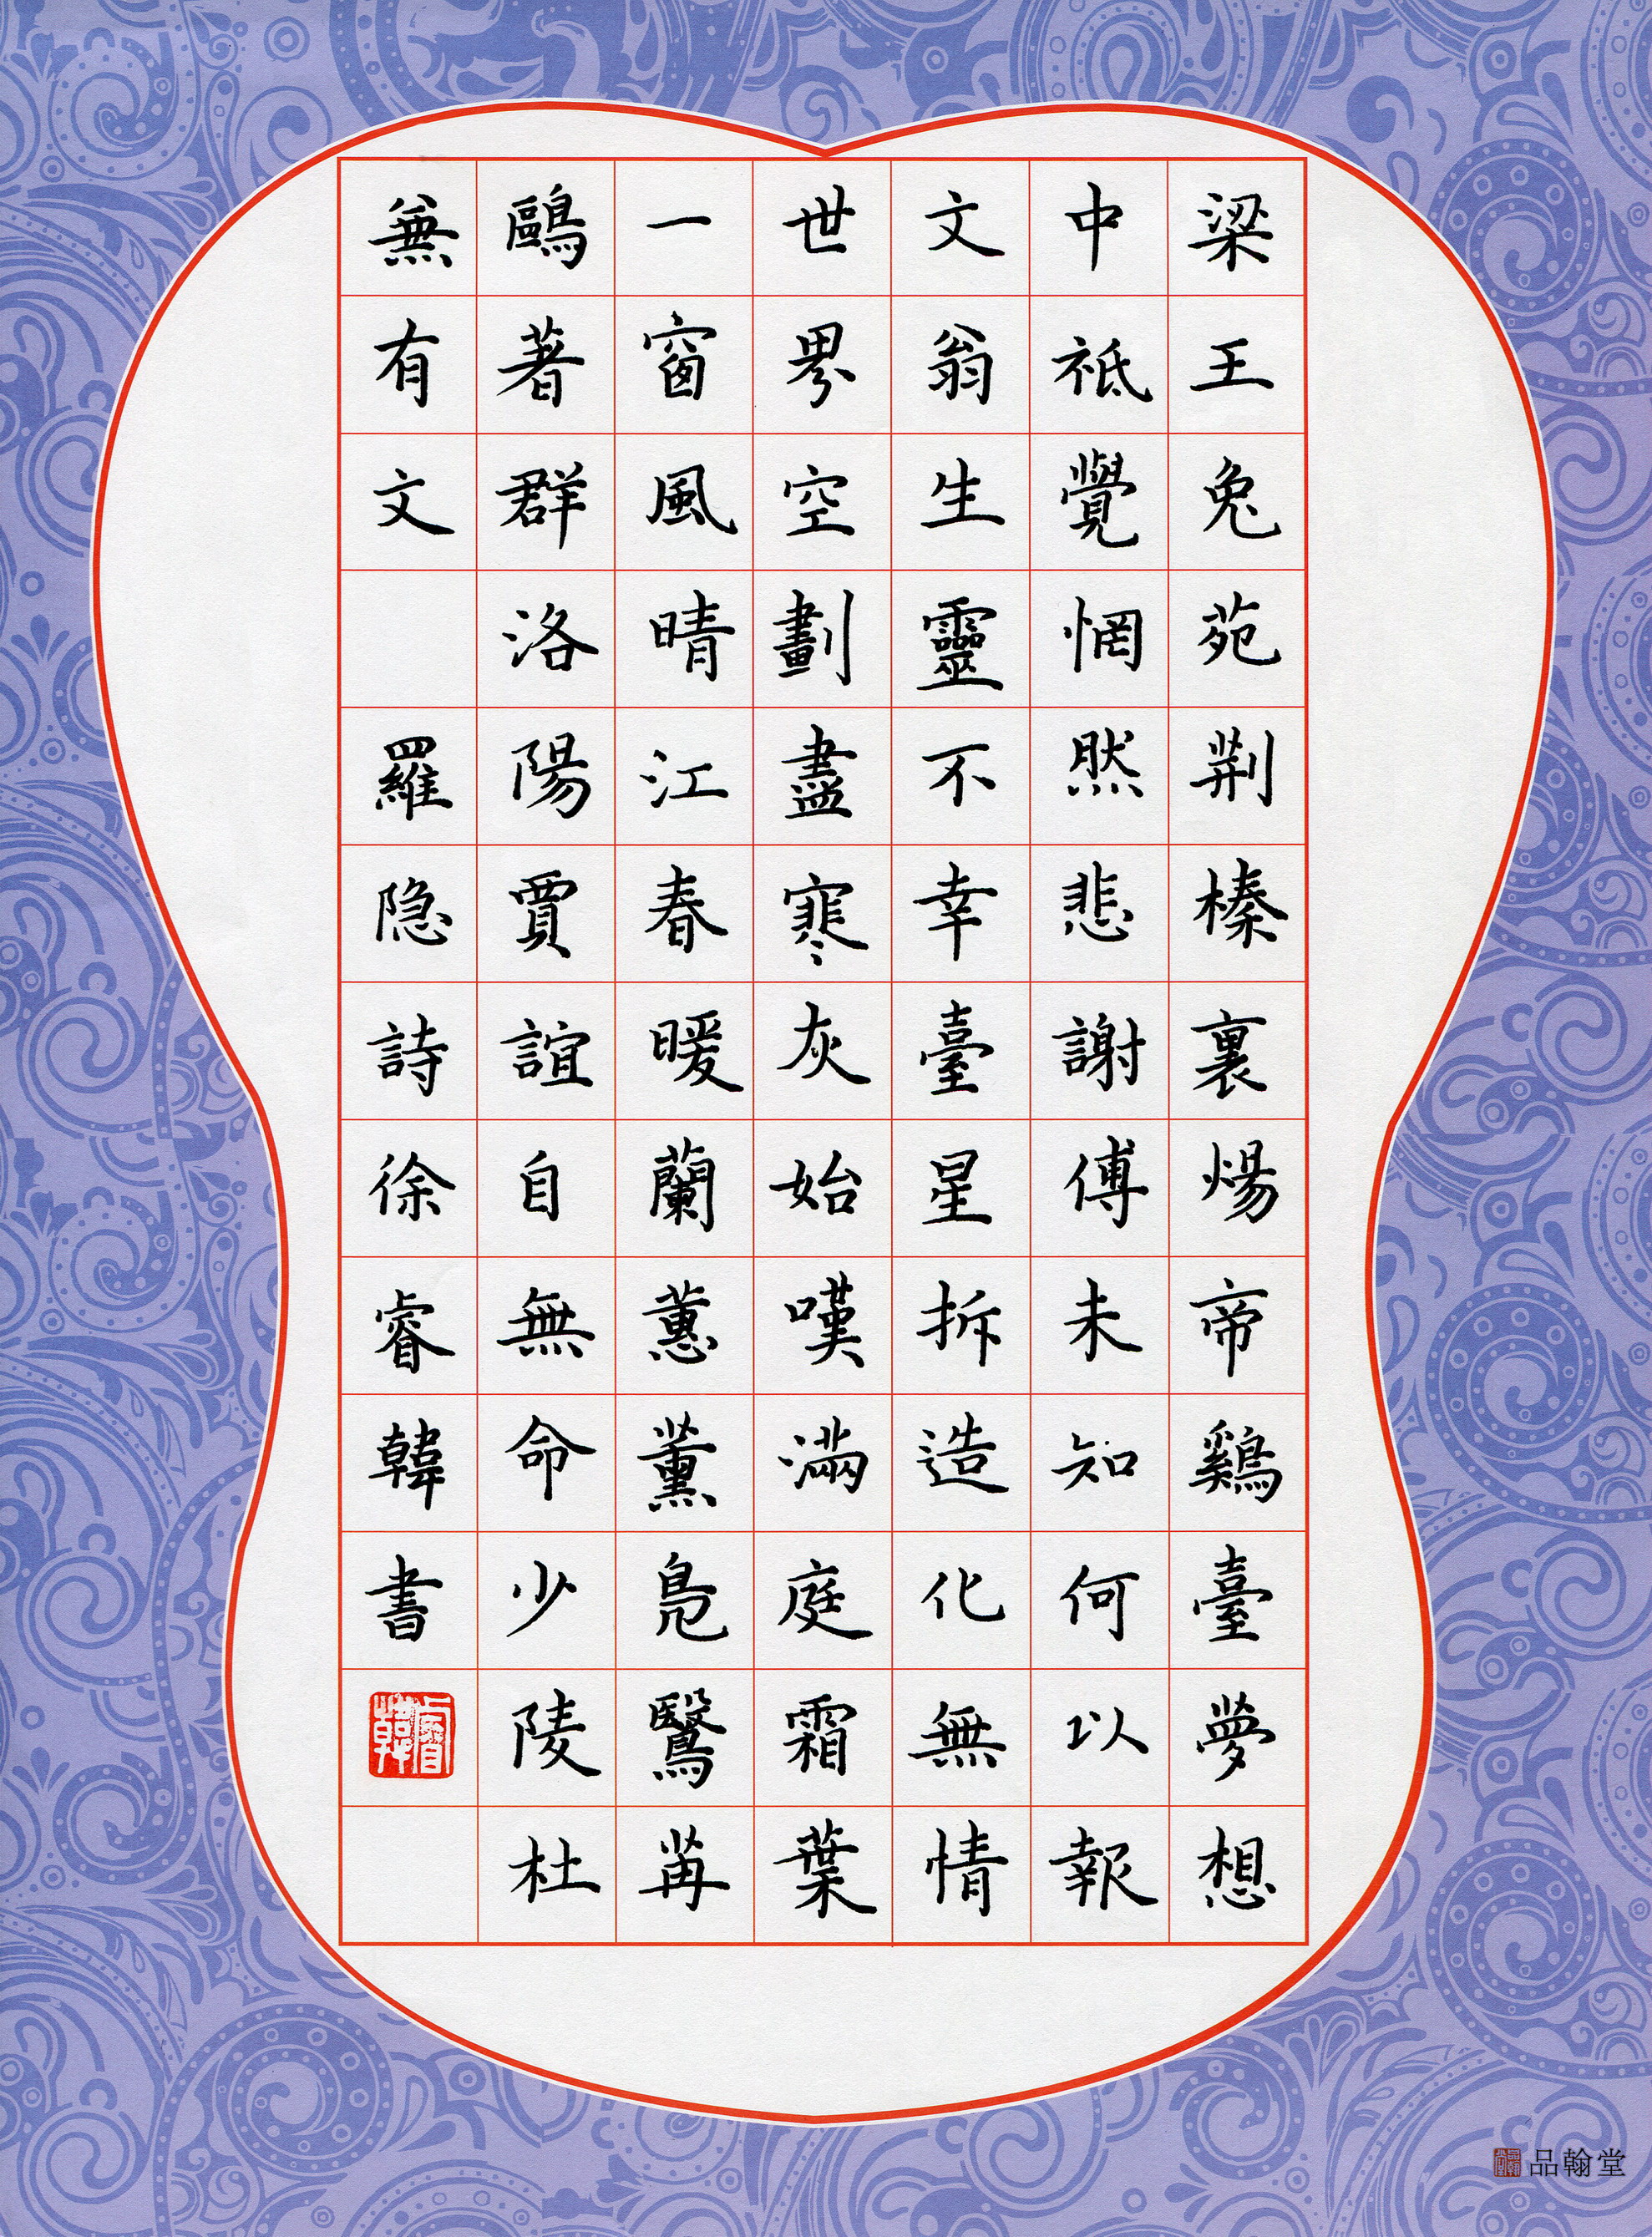 梁王兔苑荆榛裏煬帝鷄臺夢想
中祇覺惘然悲謝傅未知何以報
文翁生靈不幸臺星拆造化無情
世界空劃盡寒灰始嘆滿庭霜葉
一窗風晴江春暖蘭蕙薰鳧鷖苒
鷗著群洛陽賈誼自無命少陵杜
兼有文 羅隐詩徐睿韓書
品翰堂